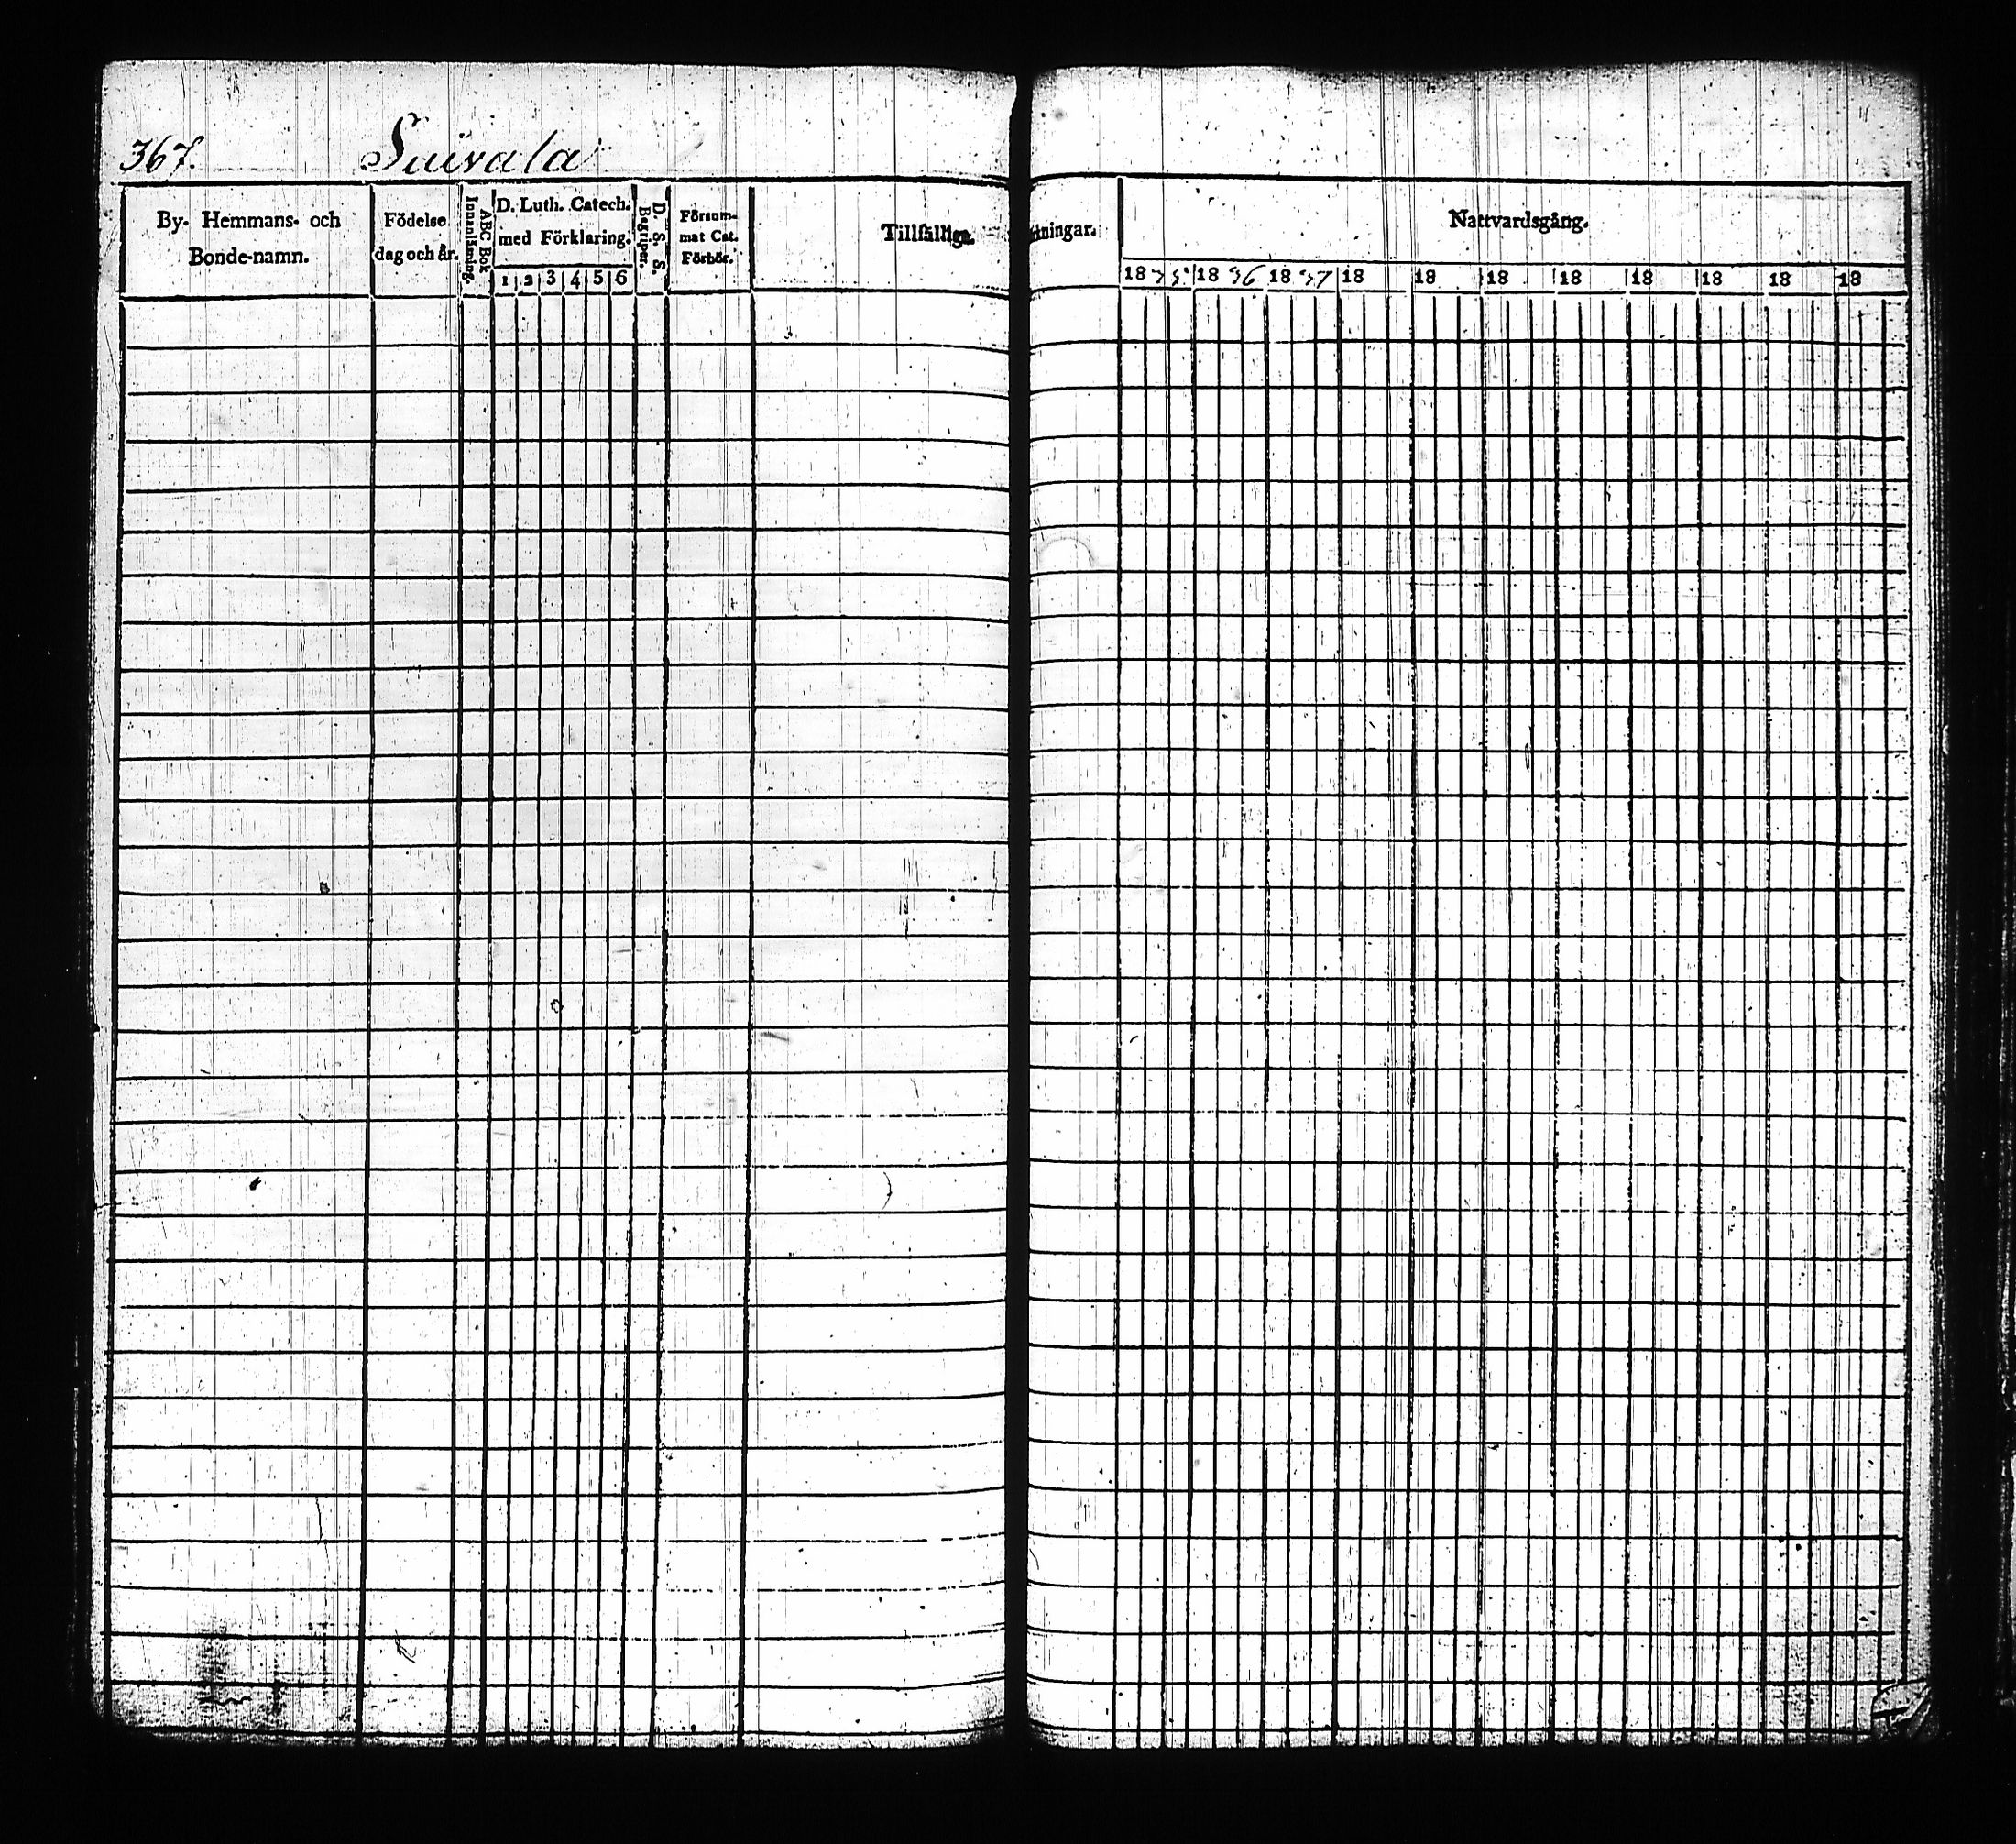 367. Suivala
By- Hemmans- och Bonde-namn.
Födelse dag och år.
ABC Bok Innanläsning.
D. Luth. Catech. med Förklaring.
1 2 3 4 5 6
D. S. S. Begriper.
Försummat Cat. Förhör.
Tillfällige
ningar.
Nattvardsgång.
1835 1836 1837 18 18 18 18 18 18 18 18